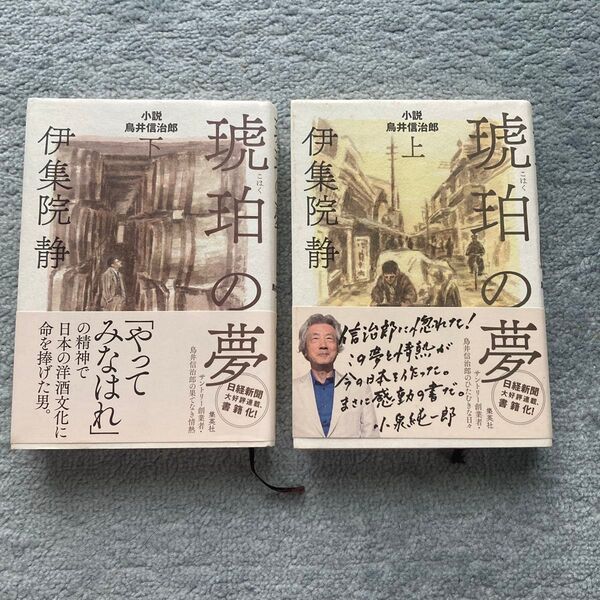 小説
鳥井信治郎
下
琥珀の夢
こはく
伊集院 静
「やって
みなはれ」
の精神で
日本の洋酒文化に
命を捧げた男。
サントリー創業者・
鳥井信治郎の果てなき情熱
日経新聞
大好評連載、
書籍化!
集英社
小説
鳥井信治郎
上
琥珀の夢
こはく
伊集院 静
信治郎に惚れた!
この夢と情熱が
今の日本を作った。
まさに感動の書だ。
小泉純一郎
サントリー創業者・
鳥井信治郎のひたむきな日々
日経新聞
大好評連載、
書籍化!
集英社